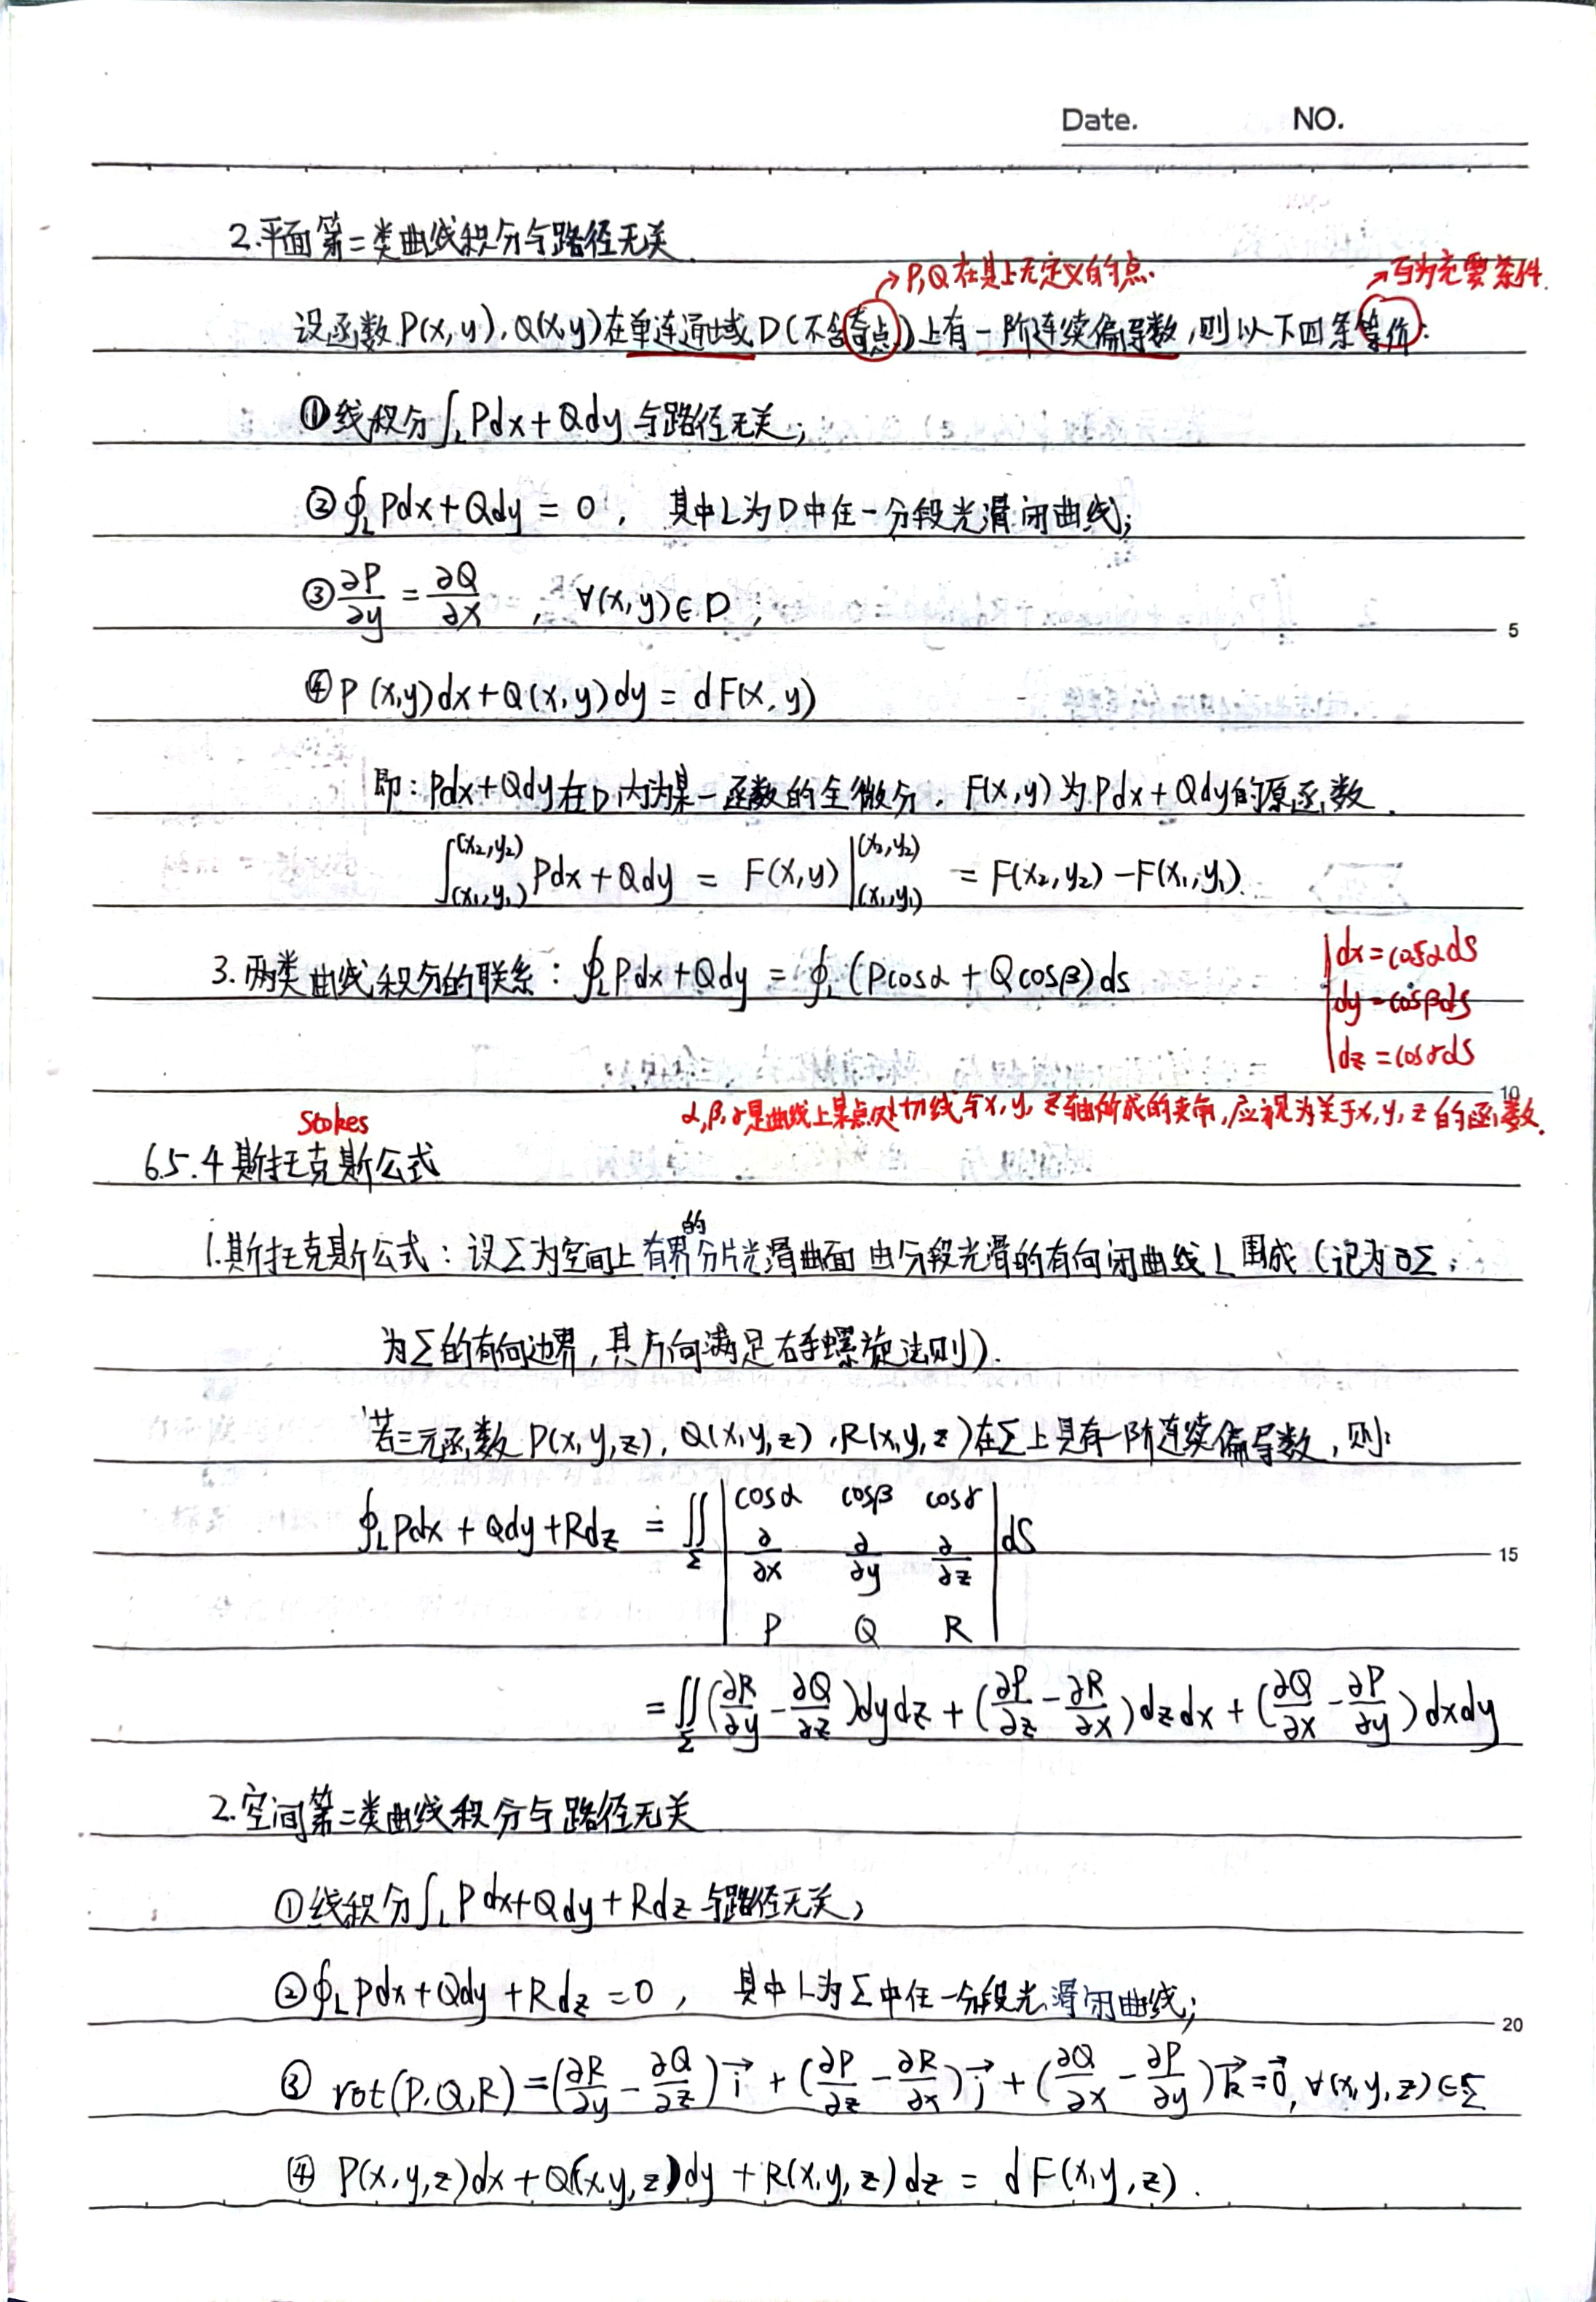 Date. NO.
2.平面第二类曲线积分与路径无关.
→P,Q在其上无定义的点. →互为充要条件.
设函数P(x,y),Q(x,y)在单连通域D(不含奇点)上有一阶连续偏导数,则以下四条等价:
①线积分∫_L Pdx+Qdy 与路径无关;
②∮_L Pdx+Qdy = 0 , 其中L为D中任一分段光滑闭曲线;
③∂P/∂y = ∂Q/∂x , ∀(x,y)∈D ;
5
④P(x,y)dx+Q(x,y)dy = dF(x,y)
即:Pdx+Qdy在D内为某一函数的全微分. F(x,y)为Pdx+Qdy的原函数.
∫_(x₁,y₁)^(x₂,y₂) Pdx+Qdy = F(x,y)|_(x₁,y₁)^(x₂,y₂) = F(x₂,y₂)-F(x₁,y₁).
3.两类曲线积分的联系:∮_L Pdx+Qdy = ∮_L (Pcosα+Qcosβ)ds
dx=cosαds
dy=cosβds
dz=cosγds
10
α,β,γ是曲线上某点处切线与x,y,z轴所成的夹角,应视为关于x,y,z的函数.
Stokes
6.5.4斯托克斯公式
1.斯托克斯公式:设Σ为空间上有界的分片光滑曲面 由分段光滑的有向闭曲线L围成(记为∂Σ;
为Σ的有向边界,其方向满足右手螺旋法则).
若三元函数P(x,y,z),Q(x,y,z),R(x,y,z)在Σ上具有一阶连续偏导数,则:
∮_L Pdx+Qdy+Rdz = ∬_Σ | cosα cosβ cosγ ; ∂/∂x ∂/∂y ∂/∂z ; P Q R | dS
15
=∬_Σ(∂R/∂y-∂Q/∂z)dydz+(∂P/∂z-∂R/∂x)dzdx+(∂Q/∂x-∂P/∂y)dxdy
2.空间第二类曲线积分与路径无关
①线积分∫_L Pdx+Qdy+Rdz 与路径无关;
②∮_L Pdx+Qdy+Rdz=0 , 其中L为Σ中任一分段光滑闭曲线;
20
③ rot(P,Q,R)=(∂R/∂y-∂Q/∂z)i⃗+(∂P/∂z-∂R/∂x)j⃗+(∂Q/∂x-∂P/∂y)k⃗=0⃗,∀(x,y,z)∈Σ
④ P(x,y,z)dx+Q(x,y,z)dy+R(x,y,z)dz = dF(x,y,z).